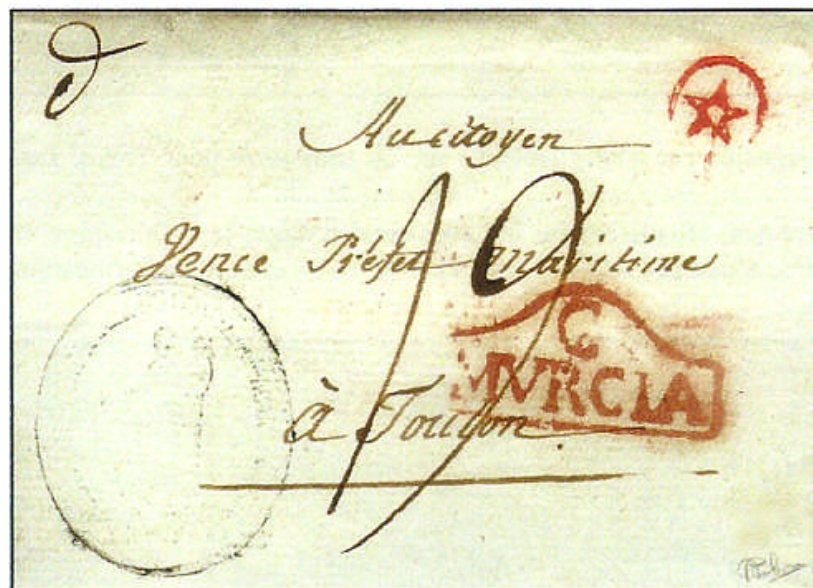 Au citoyen
Vence Préfet maritime
19
C
MVRCIA
à Toulon